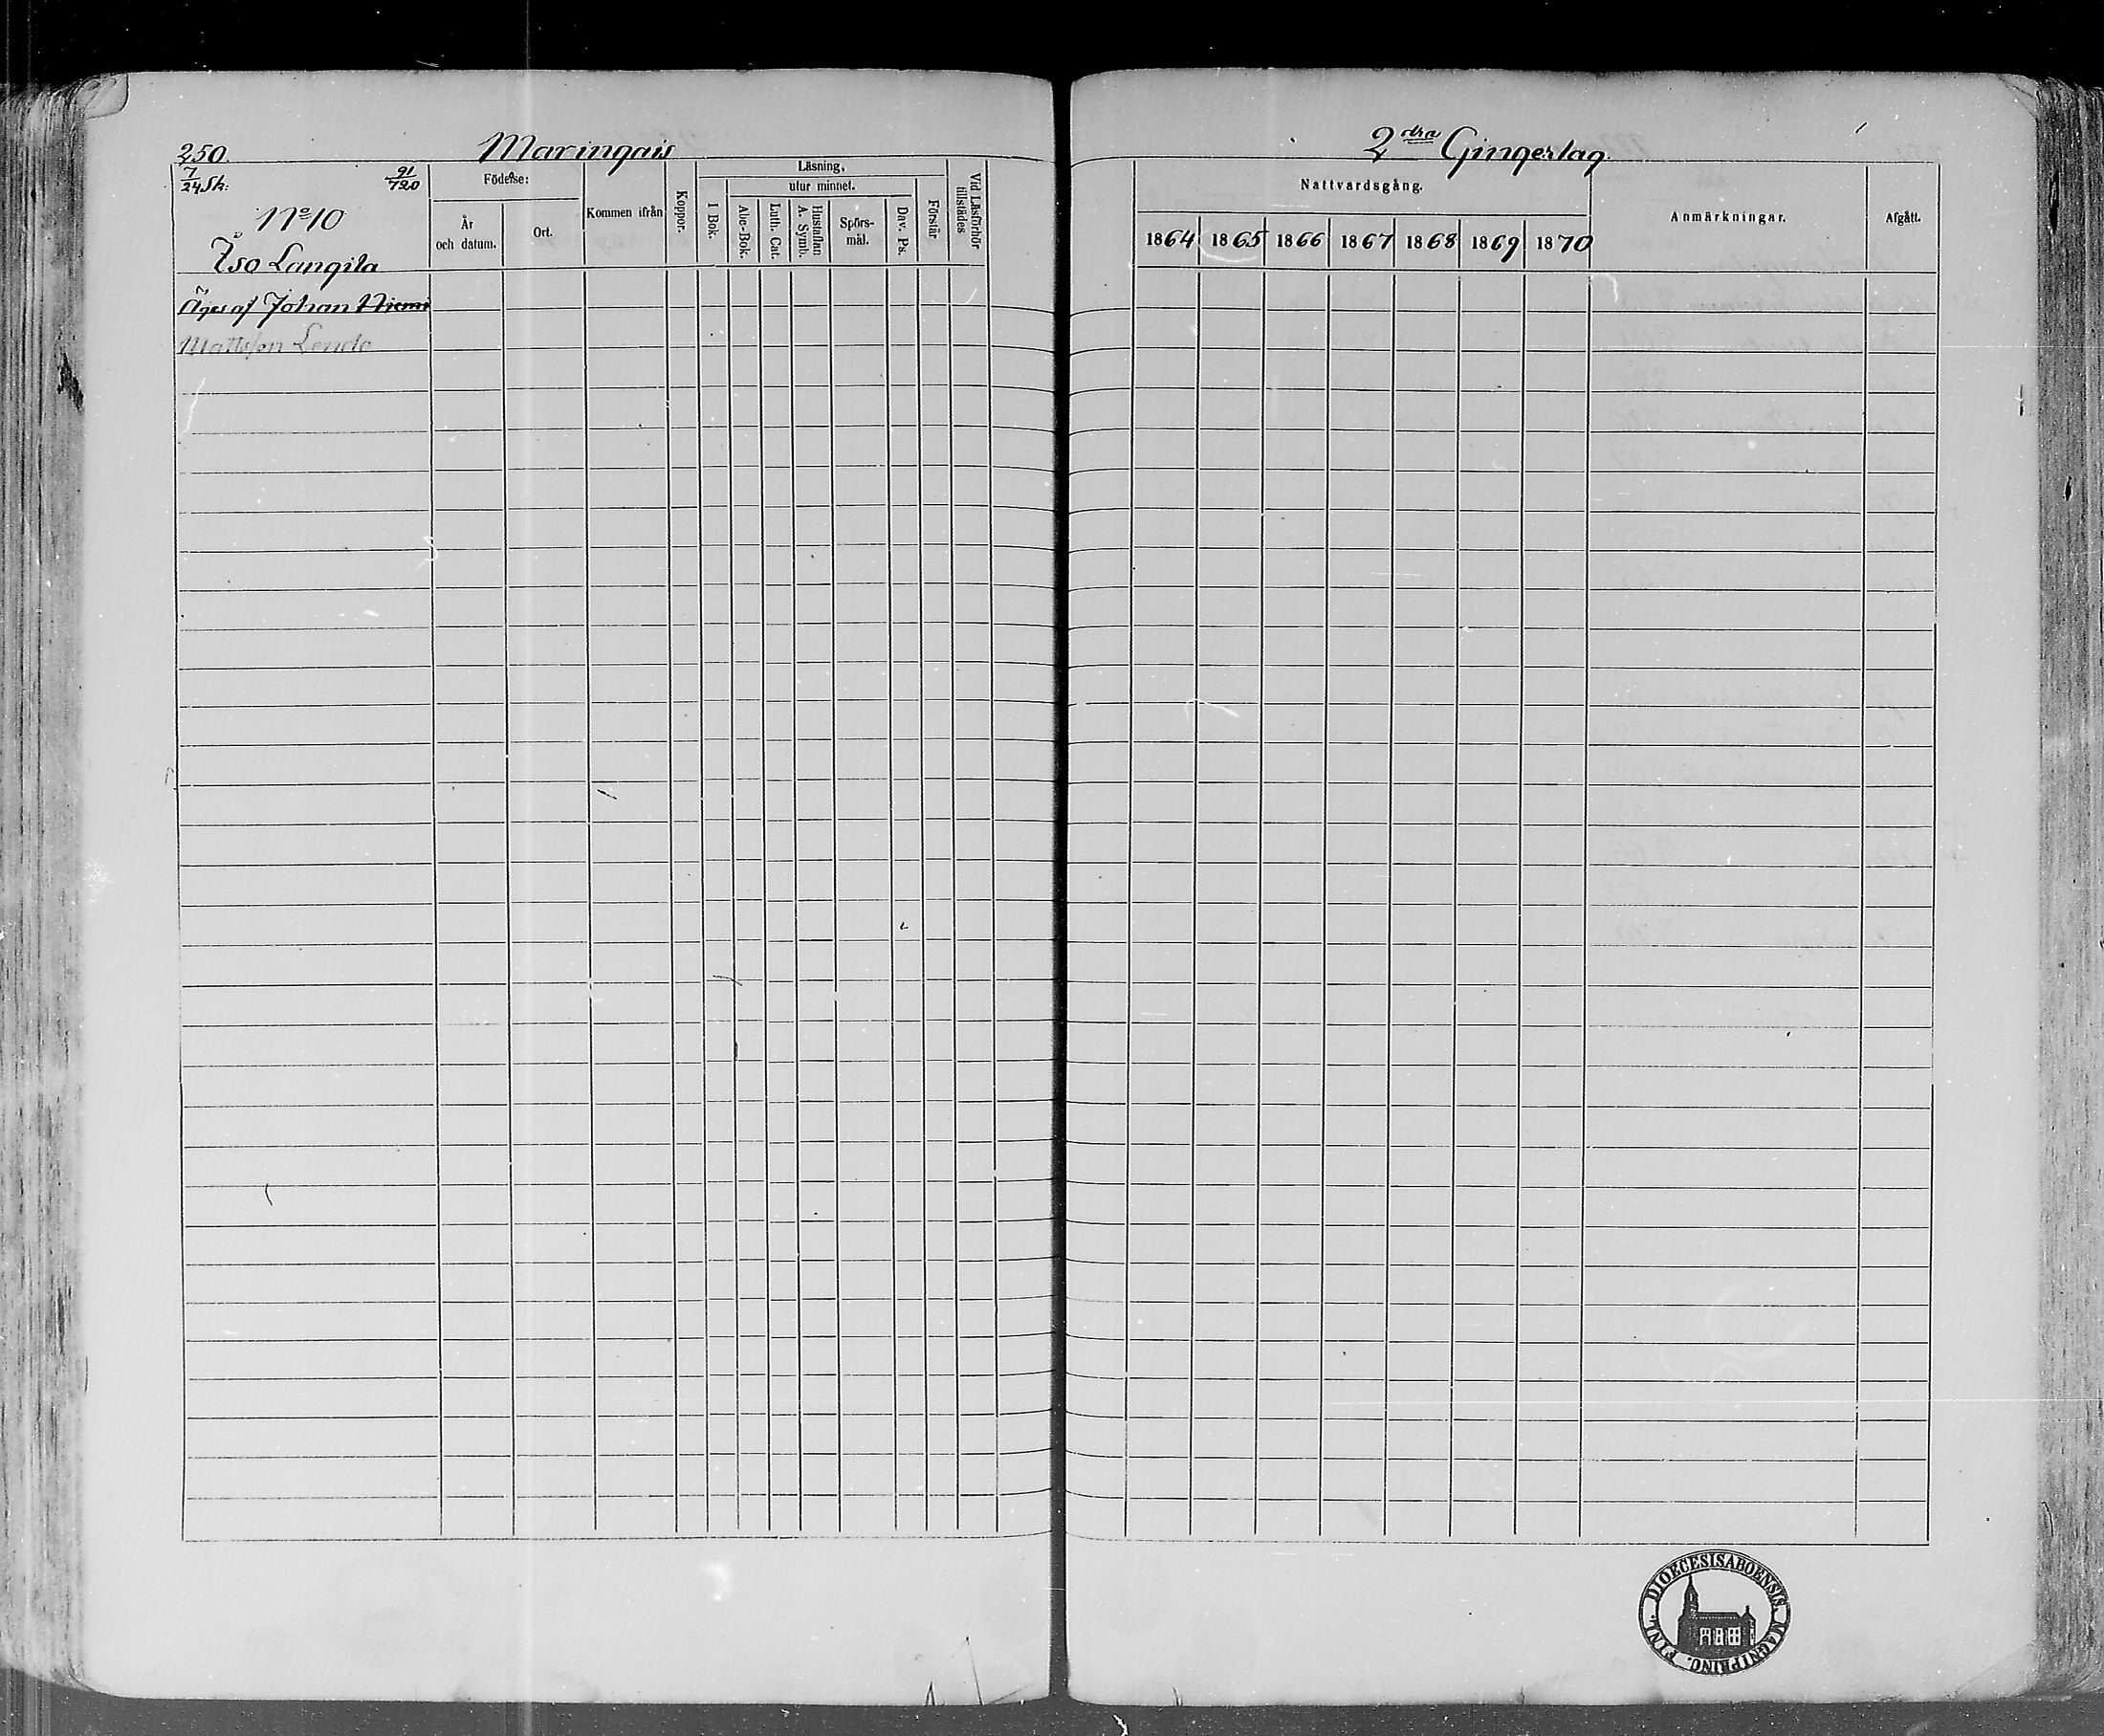 250.
Maringais
7/24 Sk:
91/720
No 10
Iso Langila
Äges af Johan Niemi
Mattsson Lendo
Födelse:
År och datum.
Ort.
Kommen ifrån
Koppor.
Läsning,
I Bok.
utur minnet.
Abc-Bok.
Luth. Cat.
Hustaflan A. Symb.
Spörs-mål.
Dav. Ps.
Förstår
Vid Läsförhör tillstädes
2dra Gingerlag.
Nattvardsgång.
1864 1865 1866 1867 1868 1869 1870
Anmärkningar.
Afgått.
DIOECESIS ABOENSIS. MAGNI PRINC. FINL.